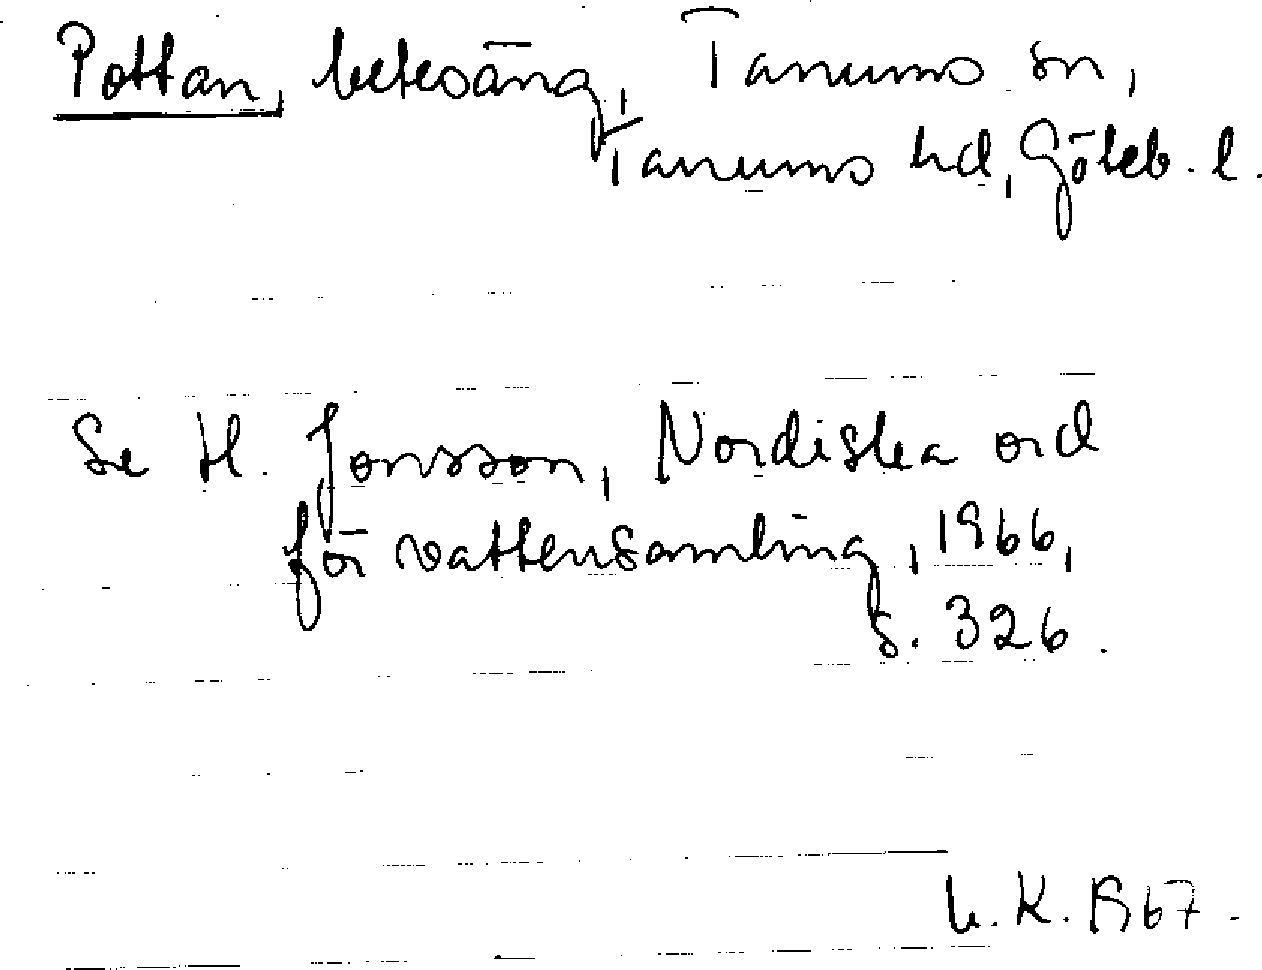 Pottan, betesäng, Tanums sn,
Tanums hd, Göteb. l.
Se H. Jonsson, Nordiska ord
för vattensamling, 1966,
s. 326.
K. 1967.